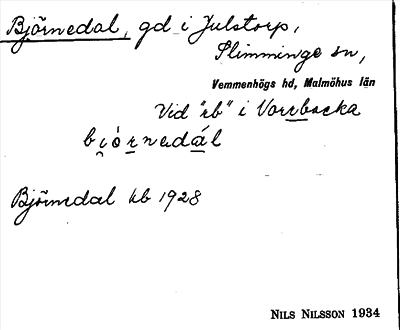 Björnedal, gd i Julstorp,
Slimminge sn,
Vemmenhögs hd, Malmöhus län
Vid "rb" i Vorrbacka
bi̯ó̤rnadál
Björnedal kb 1928
NILS NILSSON 1934